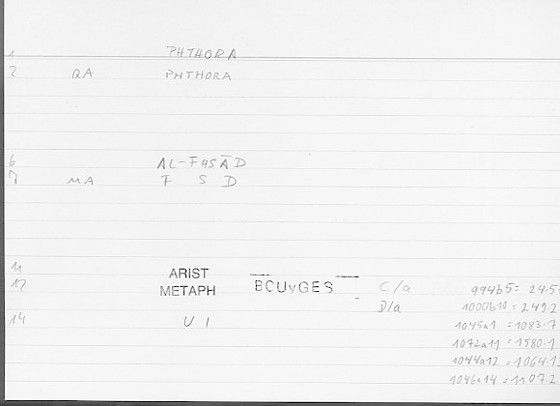 1 PHTHORA
2 QA PHTHORA
6 AL-FASĀD
7 MA F S D
11 ARIST
12 METAPH BOUYGES C/a 994b5 = 24.5
D/a 1000b10 = 249.2
14 U I 1045a1 = 1083.7
1072a11 = 1580.1
1044a12 = 1064.13
1046a14 = 1107.2